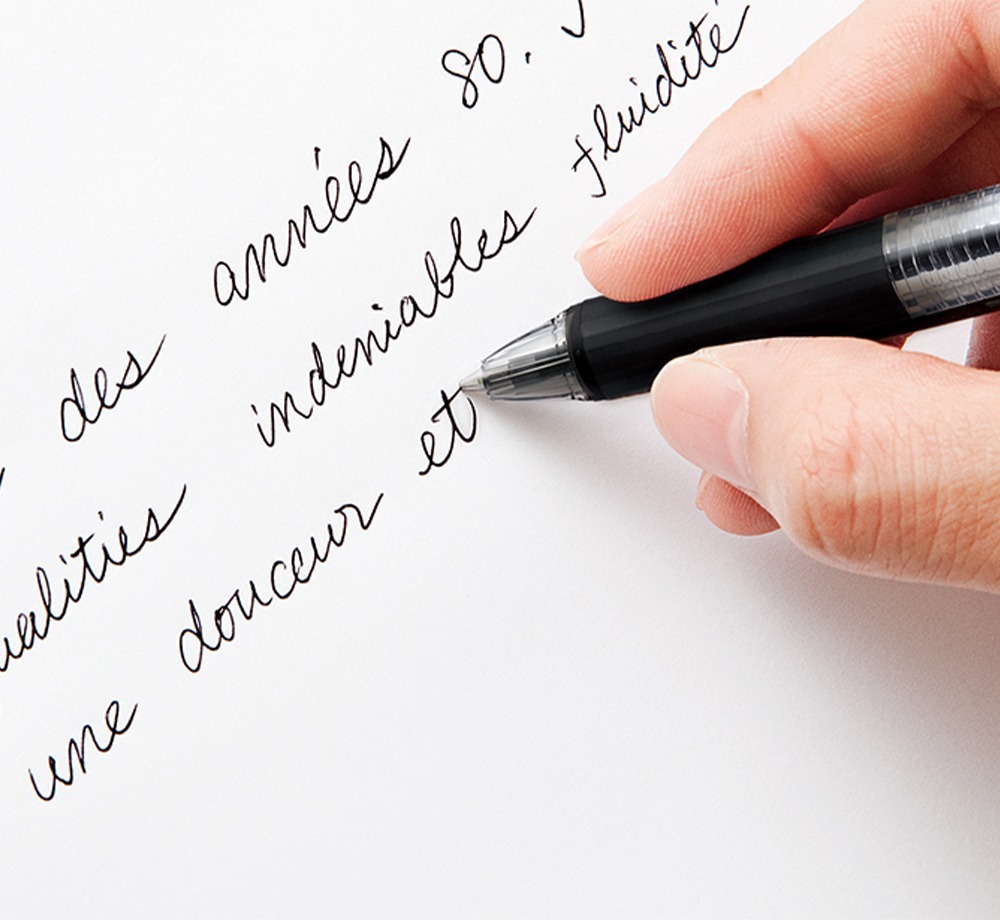 des années 80.
ualities indeniables fluidité
une douceur et